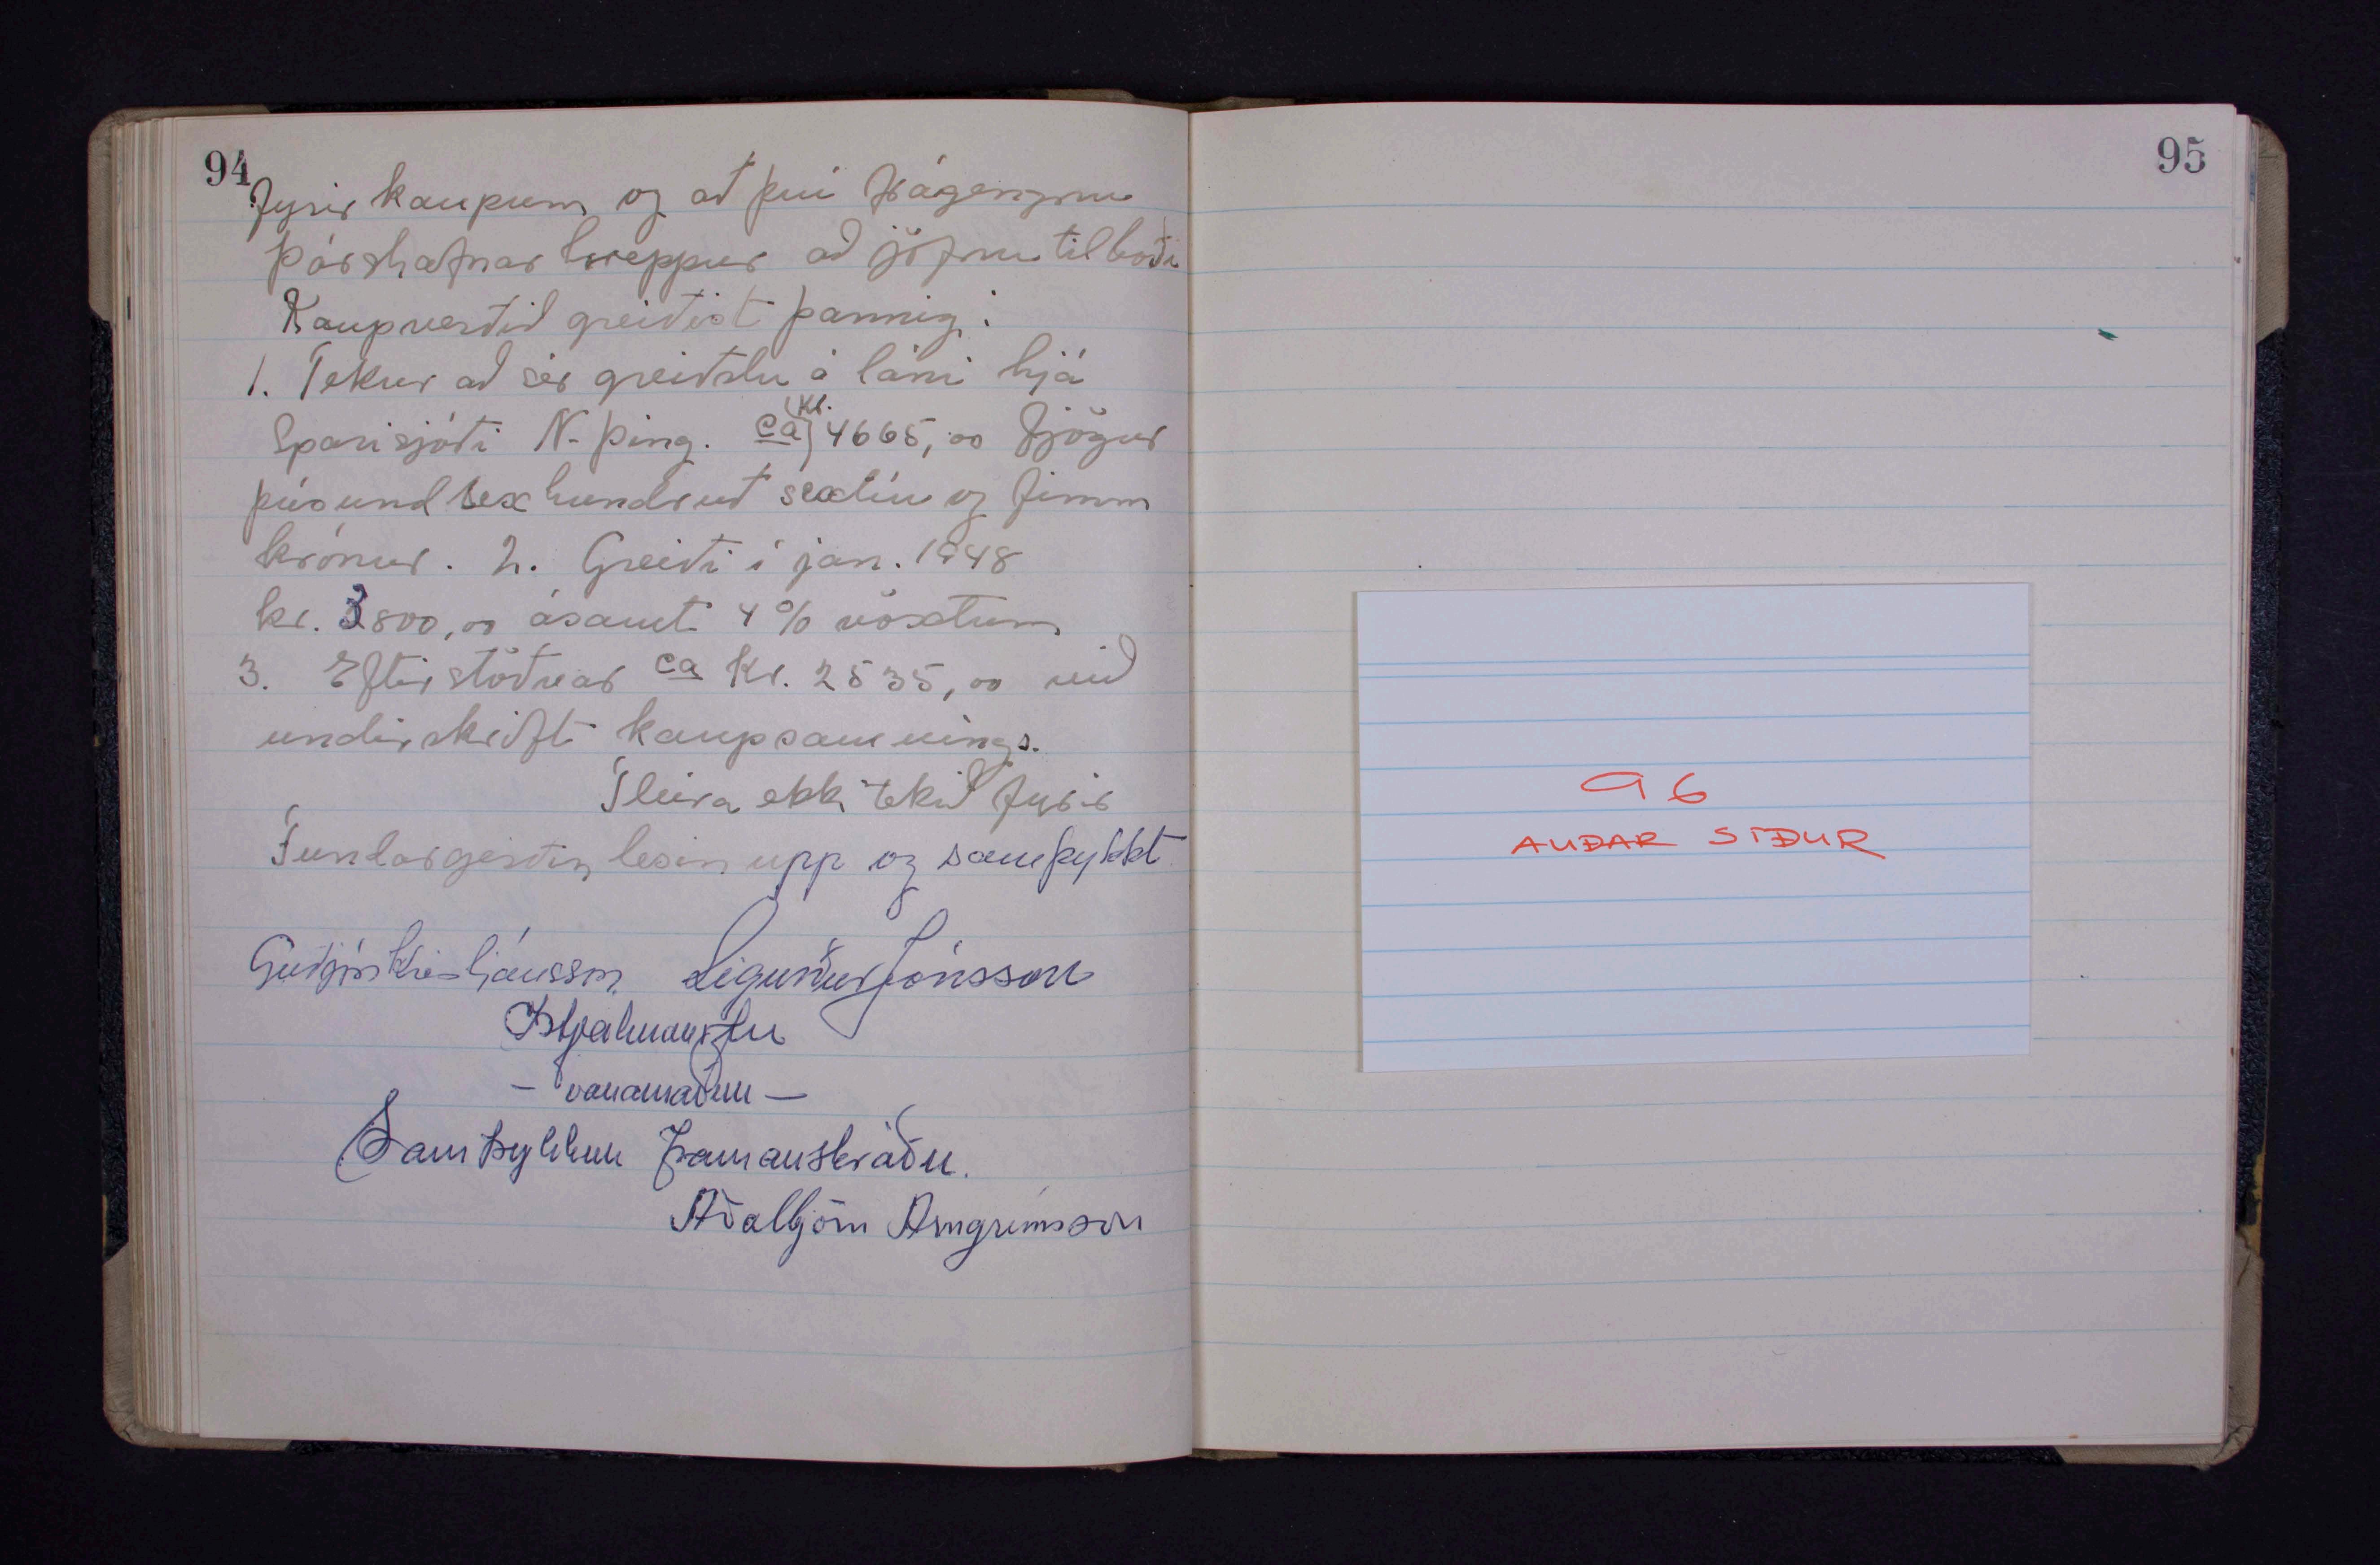 94
fyrir kaupum, og að því frágengnu
Þórshafnarhreppur að jöfnu tilboði
Kaupverðið greiðist þannig:
1. Tekur að sér greiðslu á láni hjá
Sparisjóði N-Þing. ca kr. 4665,00 fjögur
þúsund sex hundruð sextíu og fimm
krónur. 2. Greiði í jan. 1948
kr. 3800,00 ásamt 4% vöxtum
3. Eftirstöðvar ca Kr. 2535,00 við
undirskrift kaupsamnings.
Fleira ekki tekið fyrir
Fundargerðin lesin upp og samþykkt
Guðjón Kristjánsson Sigurður Jónsson
- varamaður -
Samþykkur framanskráðu.
Aðalbjörn Arngrímsson
95
96
AUÐAR SÍÐUR